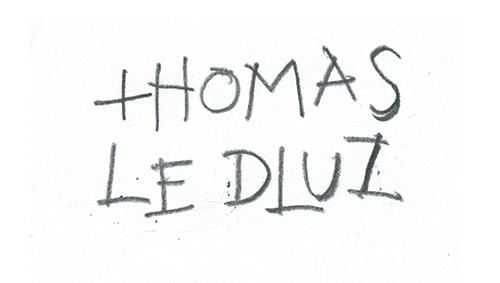 THOMAS
LE DLUZ